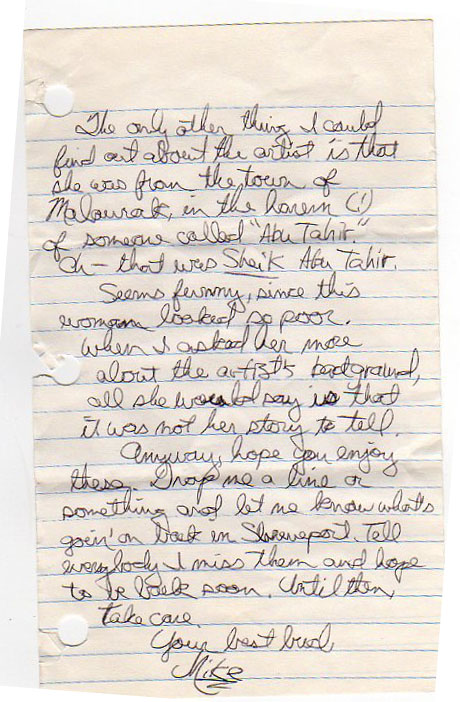 The only other thing I could
find out about the artist is that
she was from the town of
Malourak, in the harem (!)
of someone called "Abu Tahir."
Oh - that was Sheik Abu Tahir.
Seems funny, since this
woman looked so poor.
When I asked her more
about the artist's background,
all she would say is that
it was not her story to tell.
Anyway, hope you enjoy
these. Drop me a line or
something and let me know what's
goin' on back in Shreveport. Tell
everybody I miss them and hope
to be back soon. Until then,
take care.
Your best bud,
Mike